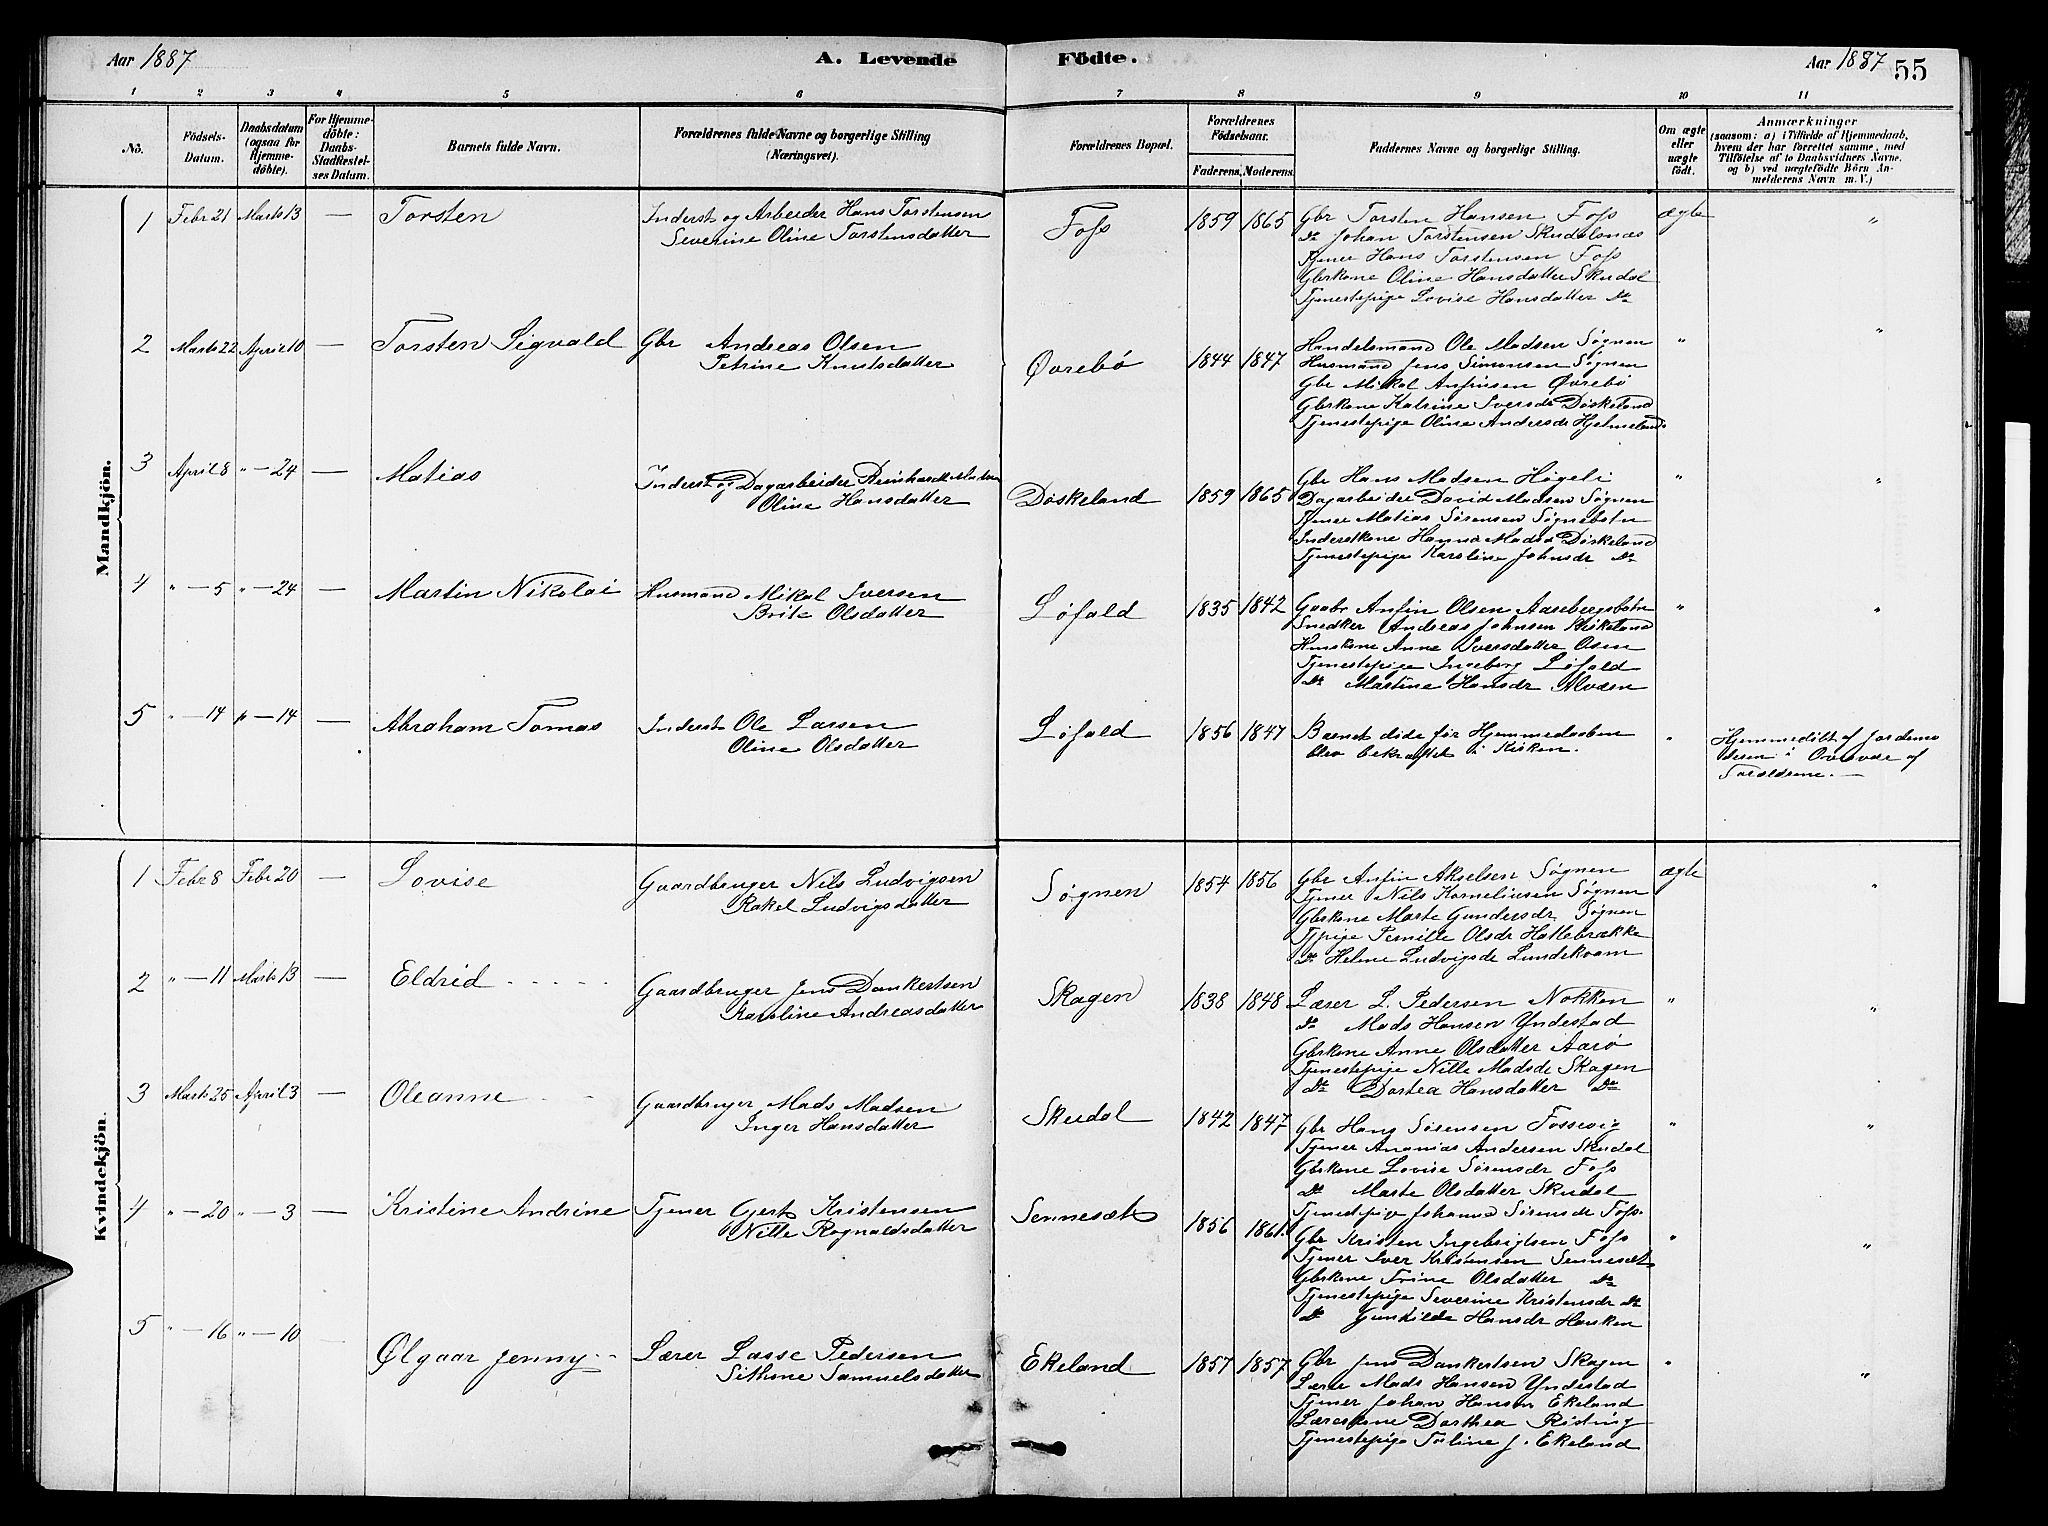 Aar 1887 A. Levende Födte. Aar 1887 55
1 2 3 4 5 6 7 8 9 10 11
No.
Födsels-Datum.
Daabsdatum (ogsaa for Hjemme-döbte).
For Hjemme-döbte: Daabs-Stadfæstel-ses Datum.
Barnets fulde Navn.
Forældrenes fulde Navne og borgerlige Stilling (Næringsvei).
Forældrenes Bopæl.
Forældrenes Födselsaar.
Faderens. Moderens.
Faddernes Navne og borgerlige Stilling.
Om ægte eller uægte födt.
Anmærkninger
(saasom: a) i Tilfælde af Hjemmedaab,
hvem der har forrettet samme, med
Tilföielse af to Daabsvidners Navne,
og b) ved uægtefödte Börn An-
melderens Navn m. V.)
Mandkjön.
1 Febr 21 Marts 13 — Torsten Inderst og Arbeider Hans Torstensen Foss 1859 1865 Gbr Torsten Hansen Foss ægte "
Severine Oline Torstensdatter Do Johan Torstensen Skudalsnæs
Tjener Hans Torstensen Foss
Gbrkone Oline Hansdatter Skudal
Tjenestepige Lovise Hansdatter Do
2 Marts 22 April 10 — Torsten Sigvald Gbr Andreas Olsen Øvrebö 1844 1847 Handelsmand Ole Madsen Søgnen " "
Petrine Knutsdatter Husmand Jens Simonsen Søgnen
Gbr Mikal Anfinsen Øvrebö
Gbrkone Katrine Iversdr Döskeland
Tjenestepige Oline Andersdr Hjelmeland
3 April 8 " — 24 — Matias Inderst og Dagarbeider Reinhardt Madsen Döskeland 1859 1865 Gbr Hans Madsen Høgeli " "
Oline Hansdatter Dagarbeider David Madsen Søgnen
Tjener Matias Sørensen Søgnebotn
Inderstkone Hanna Madsd Döskeland
Tjenestepige Karoline Johnsdr Do
4 " — 5 " — 24 — Martin Nikolai Husmand Mikal Iversen Løfald 1835 1842 Gaabr Anfin Olsen Aasebergsbotn " "
Brite Olsdatter Snedker Andreas Johnsen
Huskone Anne Iversdatter Osen
Tjenestepige Ingeborg Løfald
Do Martine Hansdr
5 " — 14 " — 14 — Abraham Tomas Inderst Ole Larsen Løfald 1856 1847 Barnet døde før Hjemmedaaben " Hjemmedöbt af Jordemo
Oline Olsdatter blev bekræftet i Kirken. deren i Overvær af
Forældrene. —
Kvindekjön.
1 Febr 8 Febr 20 — Lovise Gaardbruger Nils Ludvigsen Søgnen 1854 1856 Gbr Anfin Akselsen Søgnen ægte "
Rakel Ludvigsdatter Tjener Nils Korneliusen Søgnen
Gbrkone Marte Gundersdr Søgnen
Tjpige Pernille Olsdr Hattebrække
Do Helene Ludvigsdr Lundekvam
2 " — 11 Marts 13 — Eldrid Gaardbruger Jens Dankertsen Skagen 1838 1848 Lærer L. Pedersen Nokken " "
Karoline Andreasdatter Do Mads Hansen Yndestad
Gbrkone Anne Olsdatter Aarö
Tjenestepige Nille Madsdr Skagen
Do Dortea Hansdatter Do
3 Marts 25 April 3 — Oleanne Gaardbruger Mads Madsen Skudal 1842 1847 Gbr Hans Sørensen Fossevig " "
Inger Hansdatter Tjener Ananias Andersen Skudal
Gbrkone Lovise Sørensdr Foss
Do Marte Olsdatter Skudal
Tjenestepige Johanna Sørensdr Foss.
4 " — 20 " — 3 — Kristine Andrine Tjener Gert Kristensen Sennesæt 1856 1861. Gbr Kristen Ingebrigtsen Foss " "
Nille Rognaldsdatter Tjener Iver Kristensen Sennesæt
Gbrkone Trine Olsdatter Do
Tjenestepige Severine Kristensdr Do
Do Gunhilde Hansdr
5 " — 16 " — 10 Ølgaar Jenny Lærer Lasse Pedersen Ekeland 1857 1857 Gbr Jens Dankertsen Skagen " "
Sithsne Samuelsdatter Lærer Mads Hansen Yndestad
Tjener Johan Hansen Ekeland
Lærerkone Dorthea Risting
Tjenestepige J. Ekeland